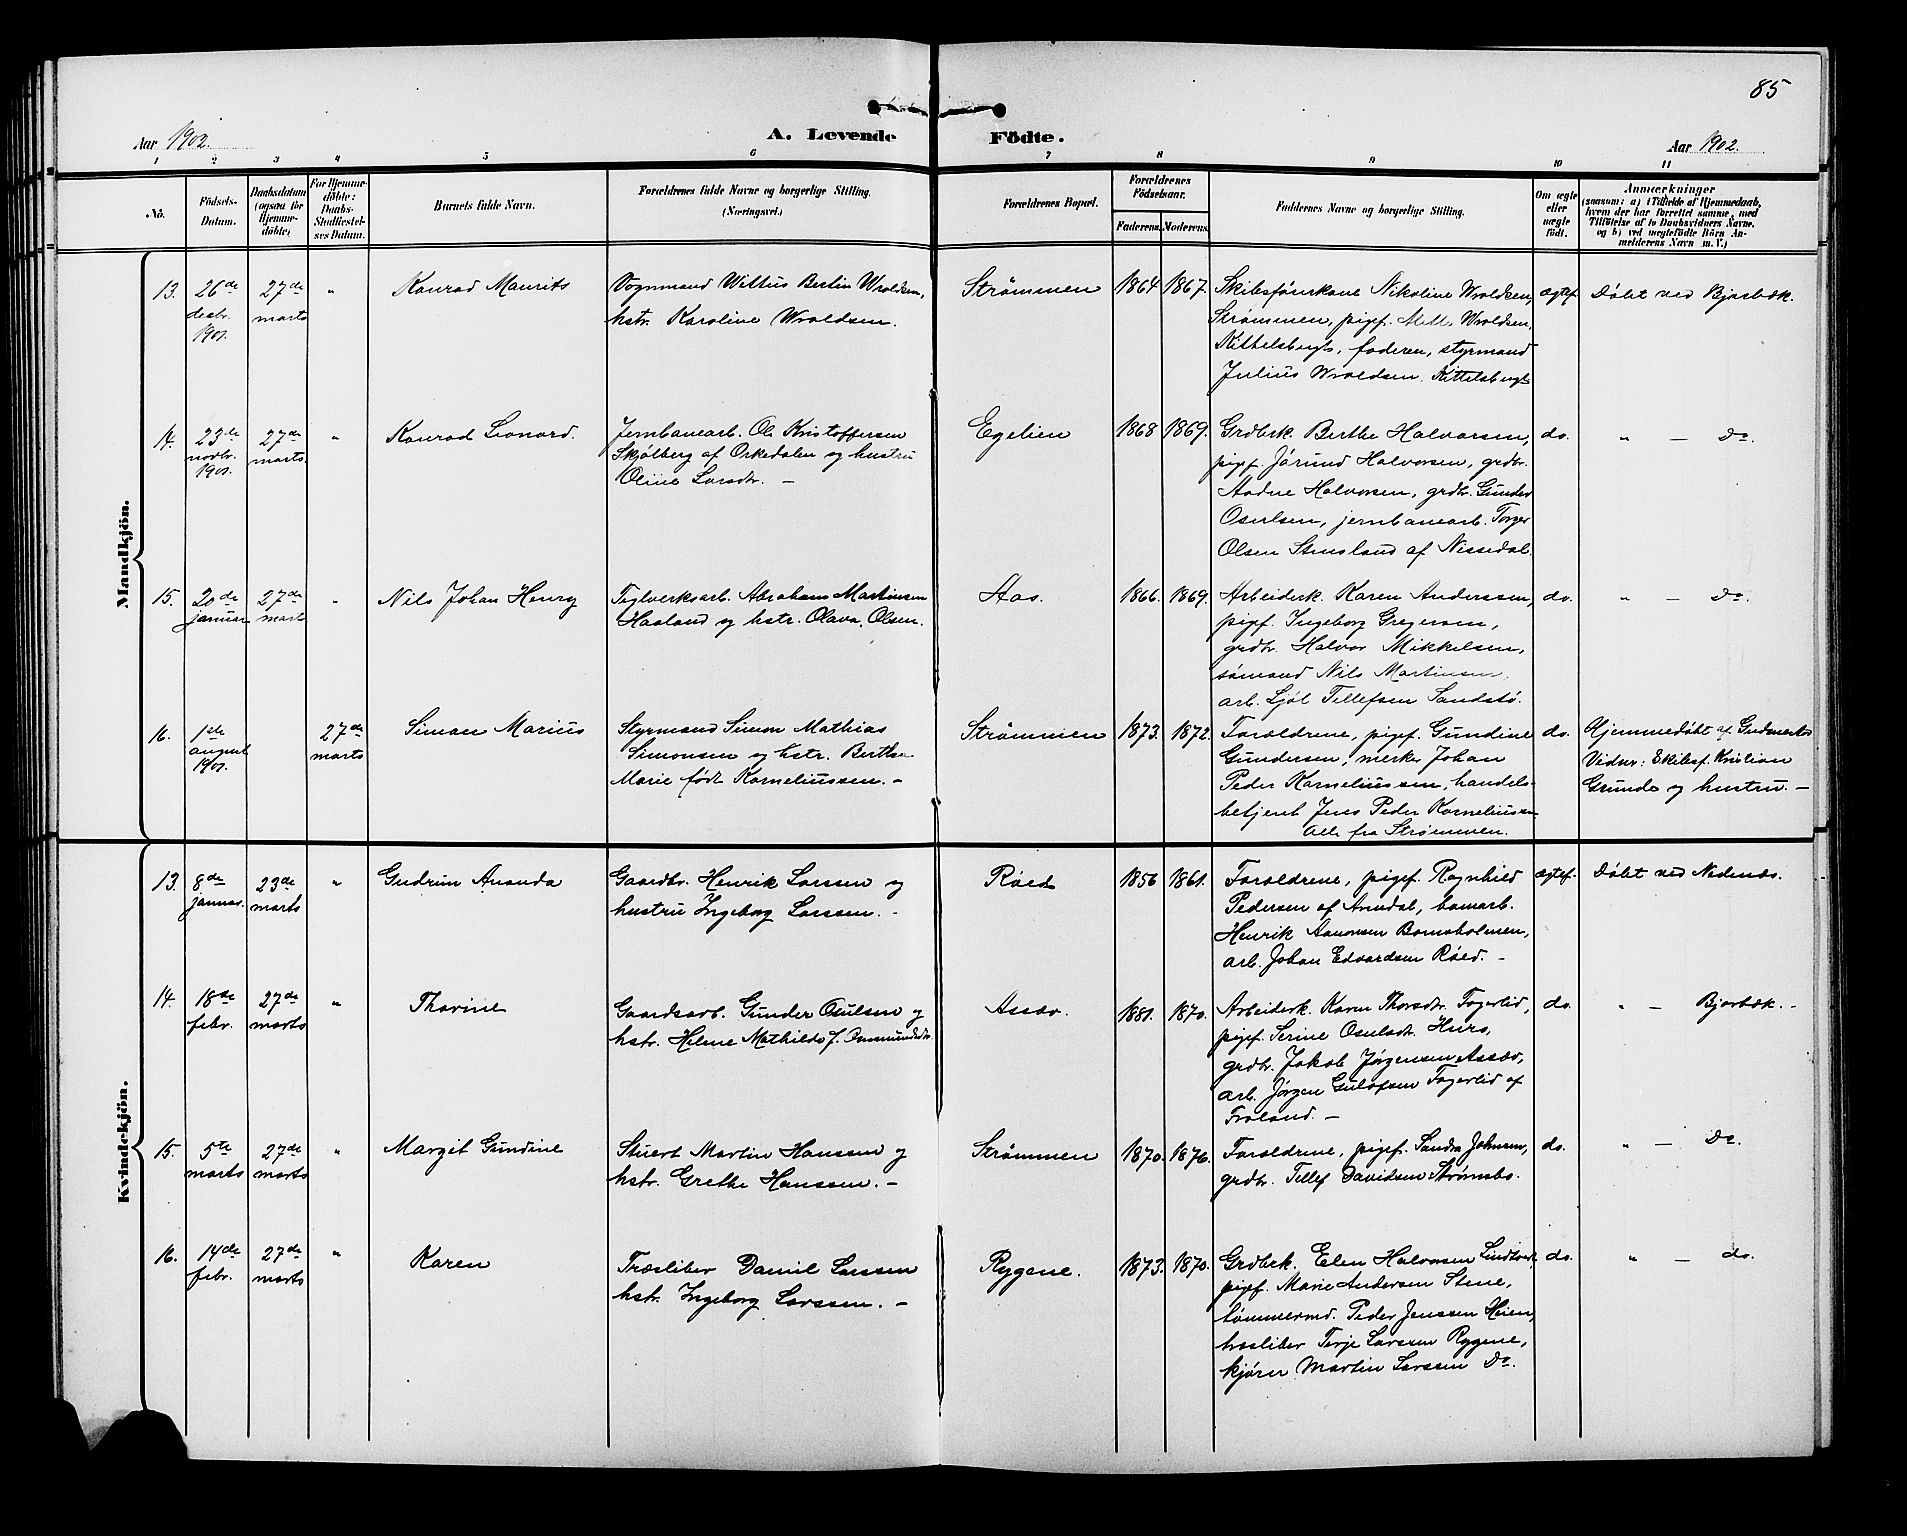 85
Aar 1902. A. Levende Födte. Aar 1902.
1 2 3 4 5 6 7 8 9 10 11
No.
Födsels-Datum.
Daabsdatum (ogsaa for Hjemme-döbte)
For Hjemme-döbte: Daabs-Stadfæstel-ses Datum.
Barnets fulde Navn.
Forældrenes fulde Navne og borgerlige Stilling. (Næringsvei.)
Forældrenes Bopæl.
Forældrenes Födselsaar.
Faderens. Moderens.
Faddernes Navne og borgerlige Stilling.
Om ægte eller uægte födt.
Anmærkninger
(saasom: a) i Tilfælde af Hjemmedaab,
hvem der har forrettet samme, med
Tilföielse af to Daabsvidners Navne,
og b) ved uægtefödte Börn An-
melderens Navn m. V.)
Mandkjön.
13. 26de desbr. 1901. 27de marts " Konrad Maurits
Vognmand Wittus Berlin Wroldsen,
hstr. Karoline Wroldsen.
Strømmen 1864 1867.
Skibsførerkone Nikoline Wroldsen,
Strømmen, pigef. Wroldsen,
Kittelsbugt, faderen, styrmand
Julius Wroldsen. Kittelsbugt
ægtef. Døbt ved Bjorbæk.
14. 23de novbr. 1901. 27de marts. " Konrad Leonard.
Jernbanearb. Ole Kristoffersen
Skjølberg af Orkedalen og hustru
Oline Larsdtr. —
Egelien 1868 1869.
Grdbrk. Berthe Halvorsen,
pigef. Jørund Halvorsen, grdbr.
Aadne Halvorsen, grdbr. Gunder
Osulsen, jernbanearb. Torger
Olsen Stensland af Nissedal.
do. " — Do.
15. 20de januar 27de marts " Nils Johan Henry
Teglverksarb. Abraham Martinsen
Haaland og hstr. Olava Olsen.
Aas. 1866. 1869.
Arbeiderk. Karen Anderssen,
pigef. Ingeborg Gregersen,
grdbr. Halvor Mikkelsen,
sømand Nils Martinsen,
arb. Tellefsen Sandstø.
do. " — Do.
16. 1ste august 1901. 27de marts Simon Marius
Styrmand Simon Mathias
Simonsen og hstr. Berthe
Marie født Korneliussen. —
Strømmen 1873. 1872.
Forældrene, pigef. Gundine
Gundersen, Johan
Peder Korneliussen, handels-
betjent Jens Peder Korneliussen
Alle fra Strømmen.
do. Hjemmedøbt af
Vidner: Skibsf. Kristian
Grunde og hustru. —
Kvindekjön.
13. 8de januar. 23de marts " Gudrun Ananda
Gaardbr. Henrik Larssen og
hustru Ingeborg Larssen. -
Røed 1856 1861.
Forældrene, pigef. Ragnhild
Pedersen af Arendal,
Henrik Aanonsen Bomsholmen,
arb. Johan Edvardsen Røed. -
ægtef. Døbt ved Nedenæs.
14. 18de febr. 27de marts " Thorine
Gaardarb. Gunder Osulsen og
hstr. Helene Mathilde f. Ommundsdtr
Assev. 1881. 1870.
Arbeiderk. Karen Thorsdtr. Fagerlid,
pigef. Serine Osulsdtr. Hurs,
grdbr. Jakob Jørgensen Assev,
arb. Jørgen Gulofsen Fagerlid af
Froland. —
do. " — Bjorbæk. -
15. 5te marts 27de marts " Margit Gundine
Stuert Martin Hanssen og
hstr. Grethe Hanssen. -
Strømmen 1870. 1876.
Forældrene, pigef. Sanda Johnsen,
grdbr. Tellef Davidsen Strømsbo.
do. " — Do.
16. 14de febr. 27de marts " Karen
Træsliber Daniel Larssen
hstr. Ingeborg Larssen. —
Rygene. 1873. 1870.
Grdbrk. Elen Halvorsen Lindtveit
pigef. Marie Andersen Stene,
tømmermd. Peder Jenssen Heien,
træsliber Terje Larssen Rygene,
kjører Martin Larssen Do.
do. " — do.